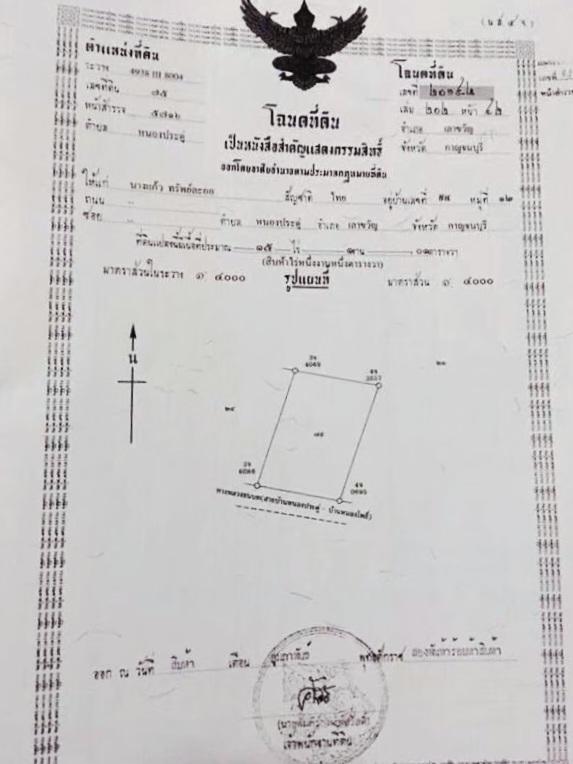 (น.ส. ๔ จ.)
ตำแหน่งที่ดิน
ระวาง 4938 III 8004
เลขที่ดิน ๗๕
หน้าสำรวจ ๕๗๑๖
ตำบล หนองประดู่
โฉนดที่ดิน
เลขที่
เล่ม ๒๐๒ หน้า
อำเภอ เลาขวัญ
จังหวัด กาญจนบุรี
โฉนดที่ดิน
เป็นหนังสือสำคัญแสดงกรรมสิทธิ์
ออกโดยอาศัยอำนาจตามประมวลกฎหมายที่ดิน
ให้แก่ นางแก้ว ทรัพย์ละออ สัญชาติ ไทย อยู่บ้านเลขที่ หมู่ที่ ๑๒
ถนน ..
ซอย .. ตำบล หนองประดู่ อำเภอ เลาขวัญ จังหวัด กาญจนบุรี
ที่ดินแปลงนี้มีเนื้อที่ประมาณ ๑๕ ไร่ ๑ งาน ๐๑ ตารางวา
(สิบห้าไร่หนึ่งงานหนึ่งตารางวา)
มาตราส่วนในระวาง ๑: ๔๐๐๐ รูปแผนที่ มาตราส่วน ๑: ๔๐๐๐
น
๒๔
๗๕
ทางหลวงชนบท(สายบ้านหนองประดู่ - บ้านหนองโพธิ์)
ออก ณ วันที่ สิบห้า เดือน กุมภาพันธ์ พุทธศักราช สองพันห้าร้อยห้าสิบห้า
เจ้าพนักงานที่ดิน